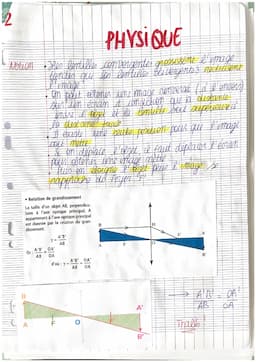 2
PHYSIQUE
Notion
• Les lentilles convergentes grossissent l'image
tandis que les lentilles divergentes
l'image.
• On peut obtenir une image renversée
sur un écran à condition que la distance
entre l'objet et la lentille soit supérieure
à la distance focale
• Il existe une seule position pour que l'image
soit nette
Si on déplace l'objet, il faut déplacer l'écran
pour obtenir une image nette.
Plus on éloigne l'objet plus l'image se
rapproche du foyer F'
• Relation de grandissement
La taille d'un objet AB, perpendicu-
laire à l'axe optique principal, A
appartenant à l'axe optique principal
est donnée par la relation de gran-
dissement :
γ = A'B' / AB
Or A'B' / AB = OA' / OA
d'où : γ = A'B' / AB = OA' / OA
B
A
F
O
A'
B'
→ A'B' / AB = OA' / OA